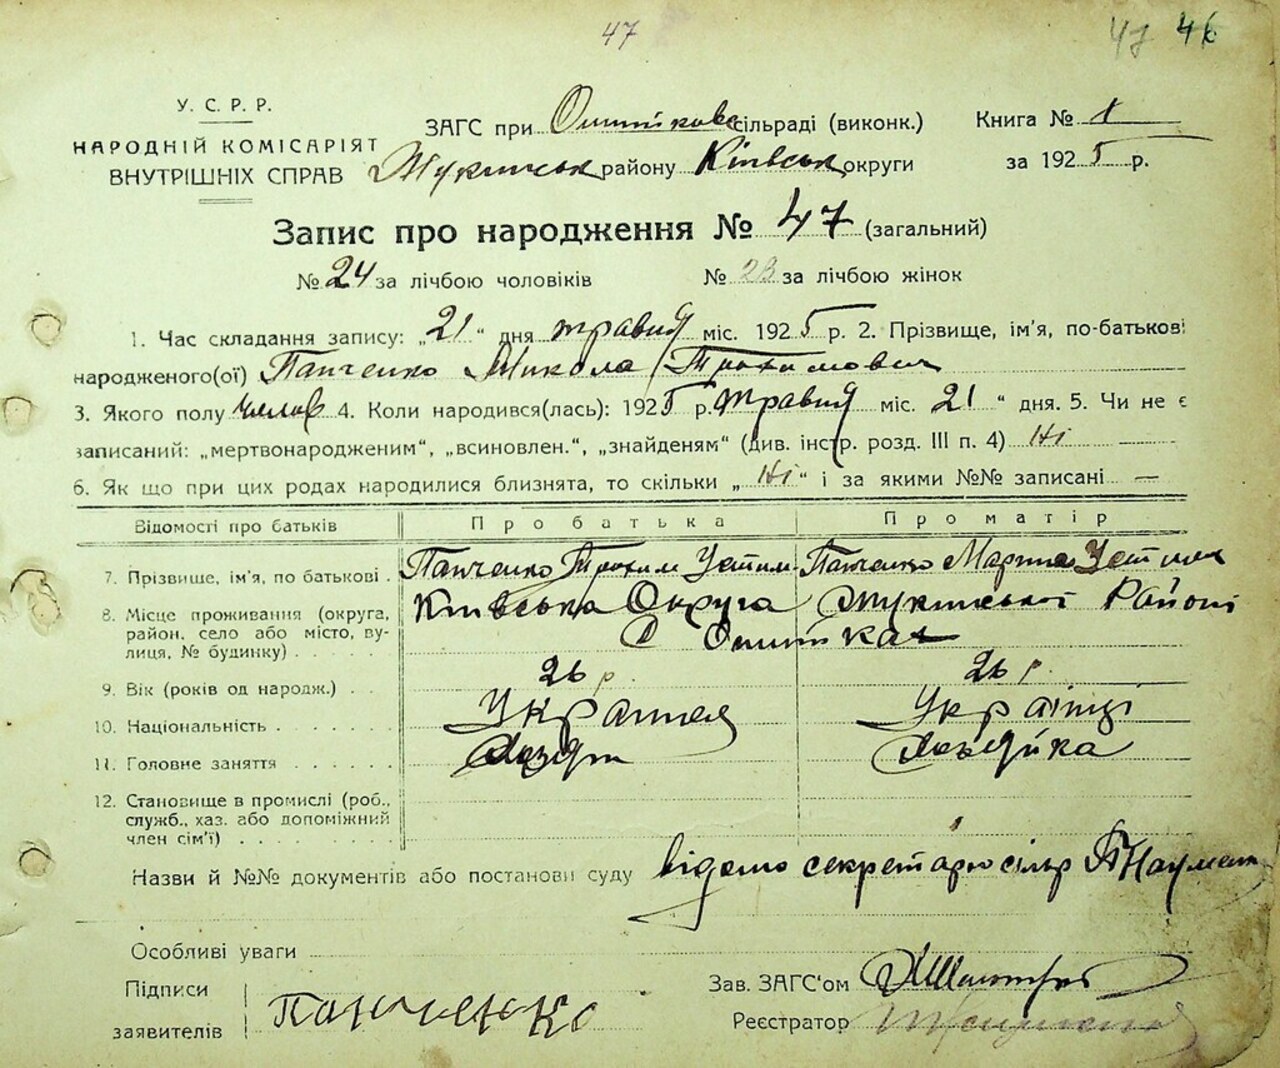 47
47 46
У. С. Р. Р.
НАРОДНІЙ КОМІСАРІЯТ
ВНУТРІШНІХ СПРАВ
ЗАГС при Ошитков сільраді (виконк.)
Жукинськ району Київськ округи
Книга № 1
за 1925 р.
Запис про народження № 47 (загальний)
№ 24 за лічбою чоловіків № 23 за лічбою жінок
1. Час складання запису: „21“ дня травня міс. 1925 р. 2. Прізвище, ім'я, по-батькові
народженого(ої) Панченко Микола Трохимович
3. Якого полу 4. Коли народився(лась): 1925 р. травня міс. 21 “ дня. 5. Чи не є
записаний: „мертвонародженим“, „всиновлен.“, „знайденям“ (див. інстр. розд. III п. 4) Ні —
6. Як що при цих родах народилися близнята, то скільки „ Ні “ і за якими №№ записані —
Відомості про батьків Про батька Про матір
7. Прізвище, ім'я, по батькові . Панченко Трохим Устим. Панченко Марина
8. Місце проживання (округа, Київська Округа Жукинської Району
район, село або місто, ву-
лиця, № будинку) . . . . . с Ошитках
9. Вік (років од народж.) . . 26 р. 26 р.
10. Національність . . . . . . Українці
11. Головне заняття . . . . . . Хазяїн Хазяйка
12. Становище в промислі (роб.,
служб., хаз. або допоміжний
член сім'ї) . . . . . . .
Назви й №№ документів або постанови суду відомо секретарю сільр
Особливі уваги
Підписи
заявителів Панченко
Зав. ЗАГС'ом
Реєстратор